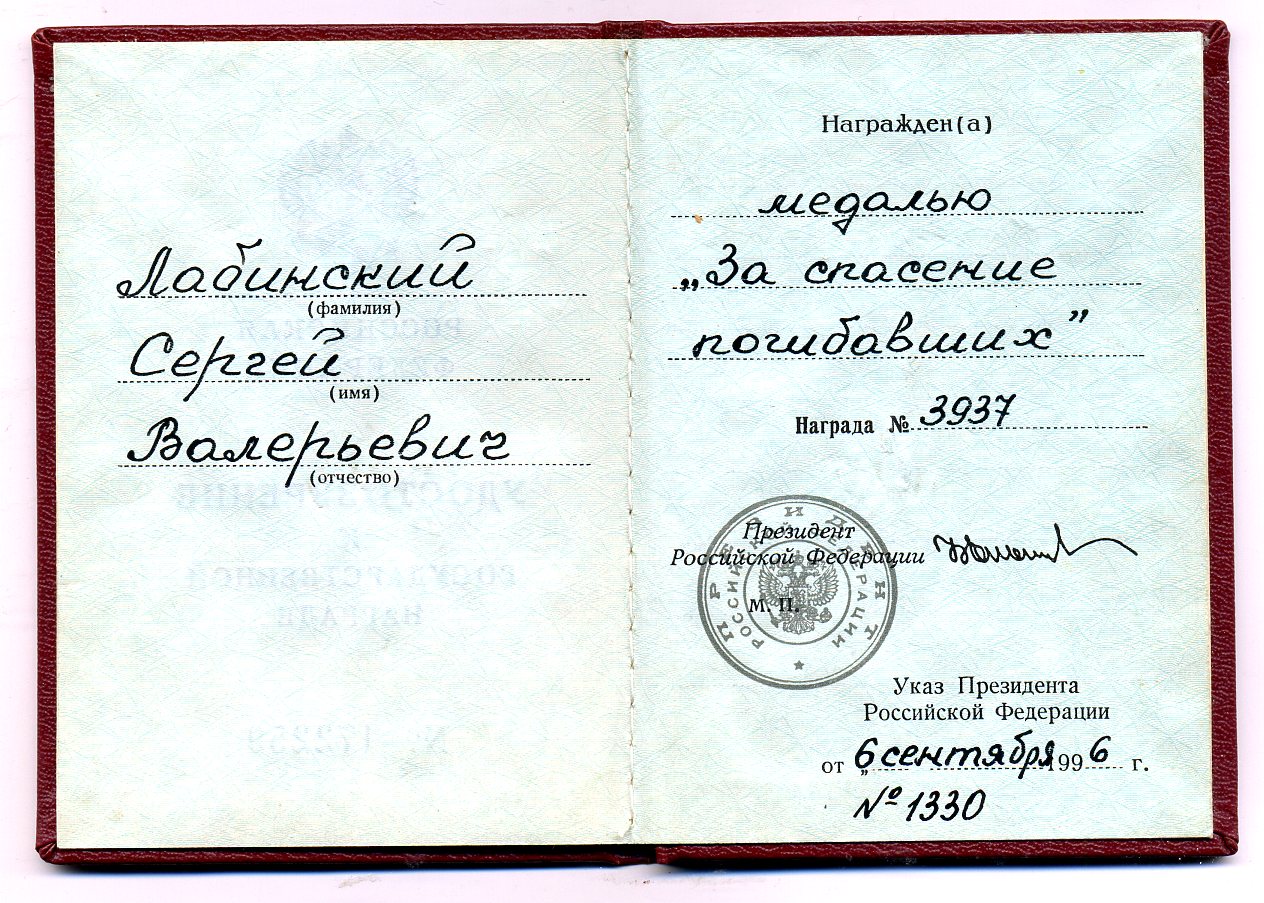 Лабинский
(фамилия)
Сергей
(имя)
Валерьевич
(отчество)
Награжден(а)
медалью
„За спасение
погибавших”
Награда № 3937
Президент
Российской Федерации
М. П.
ПРЕЗИДЕНТ
РОССИЙСКОЙ ФЕДЕРАЦИИ
Указ Президента
Российской Федерации
от „6 сентября 1996 г.
№ 1330